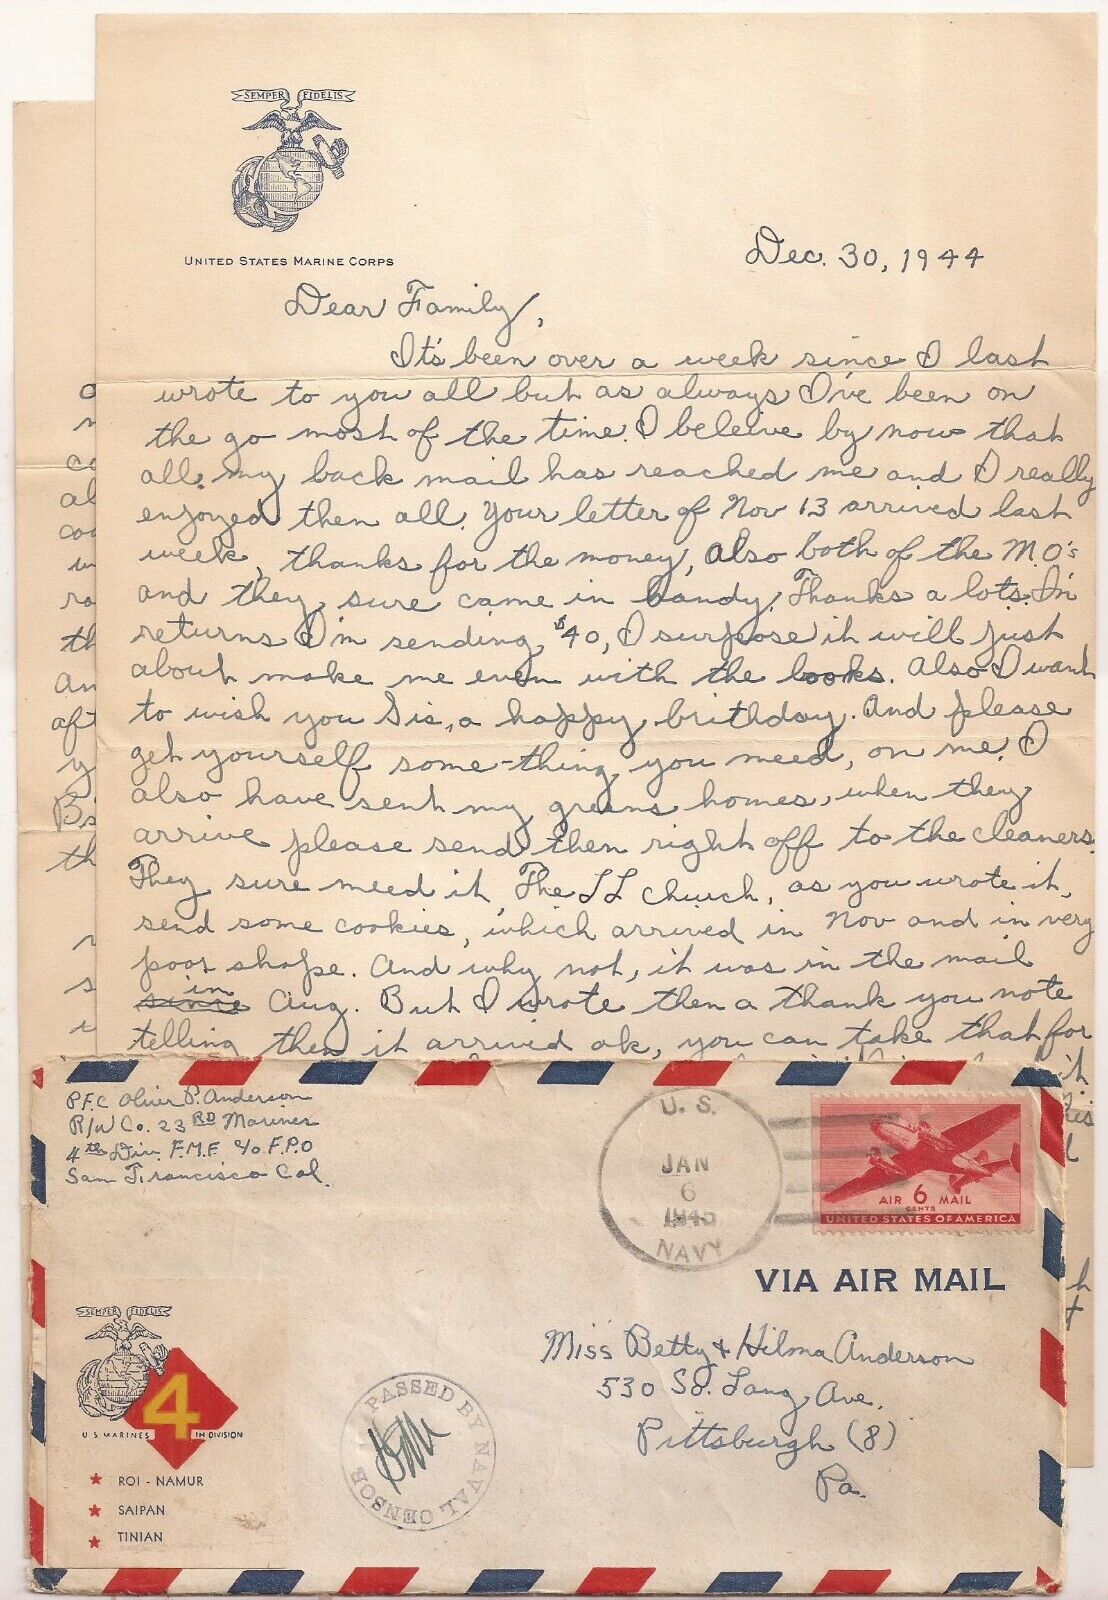 SEMPER FIDELIS
UNITED STATES MARINE CORPS
Dec. 30, 1944
Dear Family,
It's been over a week since I last
wrote to you all but as always I've been on
the go most of the time. I beleive by now that
all my back mail has reached me and I really
enjoyed them all. Your letter of Nov 13 arrived last
week, thanks for the money, also both of the M.O's
and they sure came in handy. Thanks a lots. In
returns I'm sending $40, I surpose it will just
about make me even with the books. Also I want
to wish you Sis, a happy brithday. And please
get yourself some-thing you need, on me. I
also have sent my greens homes, when they
arrive please send them right off to the cleaners.
They sure need it. The LL Church, as you wrote it,
send some cookies, which arrived in Nov and in very
poor shape. And why not, it was in the mail
in
since Aug. But I wrote them a thank you note
telling them it arrived ok, you can take that for
P.F.C Oliver P. Anderson
R/W Co. 23 RD Marines
4th Div. F.M.F. c/o F.P.O
San Francisco Cal.
U.S.
JAN
6
1945
NAVY
AIR 6 MAIL
CENTS
UNITED STATES OF AMERICA
VIA AIR MAIL
Miss Betty & Hilma Anderson
530 So. Lang Ave.
Pittsburgh (8)
Pa.
PASSED BY NAVAL CENSOR
SEMPER FIDELIS
4
U S MARINES TH DIVISION
ROI - NAMUR
SAIPAN
TINIAN